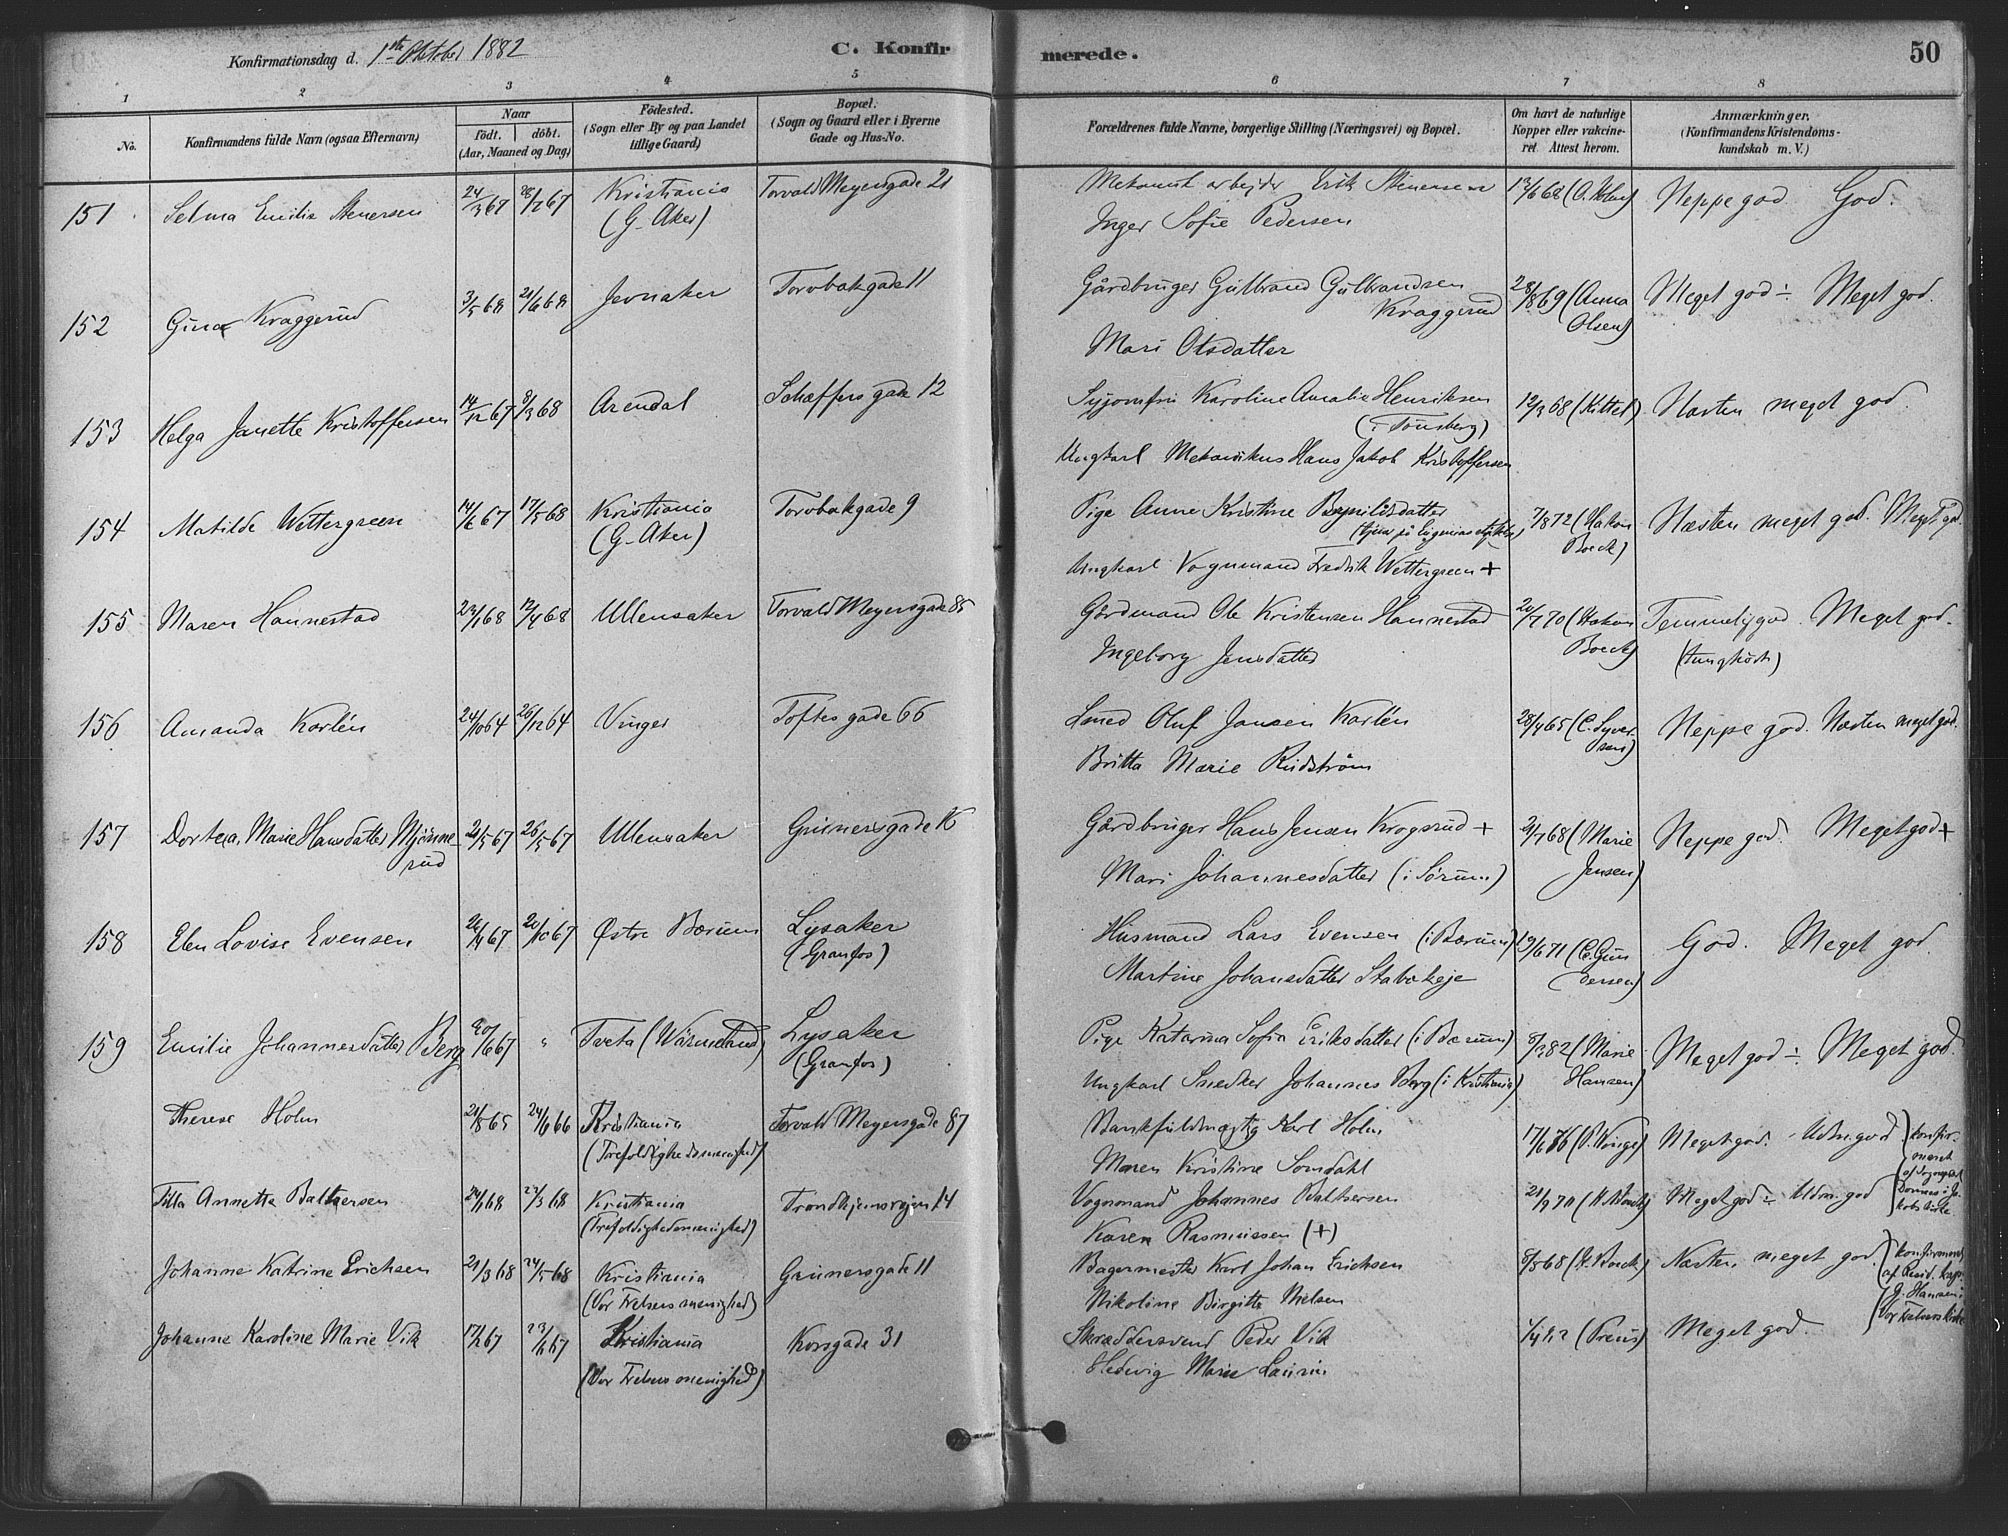 Konfirmationsdag d. 1ste Oktober 1882
C. Konfirmerede.
50
1 2 3 4 5 6 7 8
No.
Konfirmandens fulde Navn (ogsaa Efternavn)
Naar
födt. döbt.
(Aar, Maaned og Dag)
Födested.
(Sogn eller By og paa Landet
tillige Gaard)
Bopæl.
(Sogn og Gaard eller i Byerne
Gade og Hus-No.
Forældrenes fulde Navne, borgerlige Stilling (Næringsvei) og Bopæl.
Om havt de naturlige
Kopper eller vakcine-
ret Attest herom.
Anmærkninger.
(Konfirmandens Kristendoms-
kundskab m. V.)
151 Selma Emilie Stenersen 24/3 67 28/7 67 Kristiania Torvald Meyersgade 21 Mekanisk arbejder Erik Stenersen 13/6 68 Neppe god God.
(G. Aker) Inger Sofie Pedersen
152 Gina Kraggerud 3/5 68 21/6 68 Jevnaker Torvbakgade 11 Gårdbruger Gulbrand Gulbrandsen 28/8 69 (Anna Meget god ÷ Meget god.
Kraggerud Olsen)
Mari Olsdatter
153 Helga Janette Kristoffersen 14/12 67 8/3 68 Arendal Schæffers gade 12 Syjomfru Karoline Amalie Henriksen 12/3 68 (Kittel) Næsten meget god.
(i Tönsberg)
Ungkarl Mekanikus Hans Jakob Kristoffersen
154 Matilde Wettergreen 14/6 67 17/5 68 Kristiania Torvbakgade 9 Pige Anne Kristine 7/8 72 (Hakon Næsten meget god. Meget god.
(G. Aker) Boeck)
Ungkarl Vognmand Fredrik Wettergreen +
155 Maren Hannestad 23/1 68 12/4 68 Ullensaker Torvald Meyersgade 85 Gårdmand Ole Kristensen Hannestad 20/7 70 (Hakon Temmelig god. Meget god.
Ingeborg Jensdatter Boeck) (tunghört)
156 Amanda Karlén 24/10 64 26/12 64 Vinger Toftesgade 66 Smed Oluf Jansen Karlén 28/4 65 (C. Syver- Neppe god. Næsten meget god.
Britta Marie Rudström sen)
157 Dortea Marie Hansdatter Mjönne- 2/5 67 26/5 67 Ullensaker Grünersgade 16 Gårdbruger Hans Jensen Krogsrud + 21/7 68 (Marie Neppe god. Meget god +
rud Mari Johannesdatter (i Sörum) Jensen)
158 Elen Lovise Evensen 26/4 67 20/10 67 Østre Bærum Lysaker Husmand Lars Evensen (i Bærum) 19/6 71 (C. Gun- God. Meget god
(Granfos) Martine Johansdatter Stabækeje dersen)
159 Emilie Johannesdatter Berg 20/6 67 " Tveta (Wärmeland) Lysaker Pige Katarina Sofia Eriksdatter (i Bærum) 8/3 82 (Marie Meget god ÷. Meget god.
(Granfos) Ungkarl Snedker Johannes Berg (i Kristiania) Hansen)
Therese Holm 21/8 65 24/6 66 Kristiania Torvald Meyersgade 87 Bankfuldmægtig Karl Holm 17/6 76 Meget god. - Udm. god konfir-
(Trefoldighedsmenighed) Maren Kristine Somdahl meret
Tilla Annette Baltzersen 24/1 68 22/3 68 Kristiania Trondhjemsvejen 14 Vognmand Johannes Baltzersen 21/9 70 Meget god ÷ Udm. god
(Trefoldighedsmenighed) Karen Rasmussen (+)
Johanne Katrine Erichsen 21/3 68 24/5 68 Kristiania Grünersgade 11 Bagermester Karl Johan Erichsen 8/8 68 (H. Boeck) Næsten meget god. konfirmeret
(Vor Frelsers menighed) Nikoline Birgitte Nielsen af Resid. kap. J. Hansen i
Vor Frelsers kirke
Johanne Karoline Marie Vik 17/2 67 23/6 67 Kristiania Korsgade 31 Skræddersvend Peder Vik (Preus) Meget god.
(Vor Frelsers menighed) Hedevig Marie